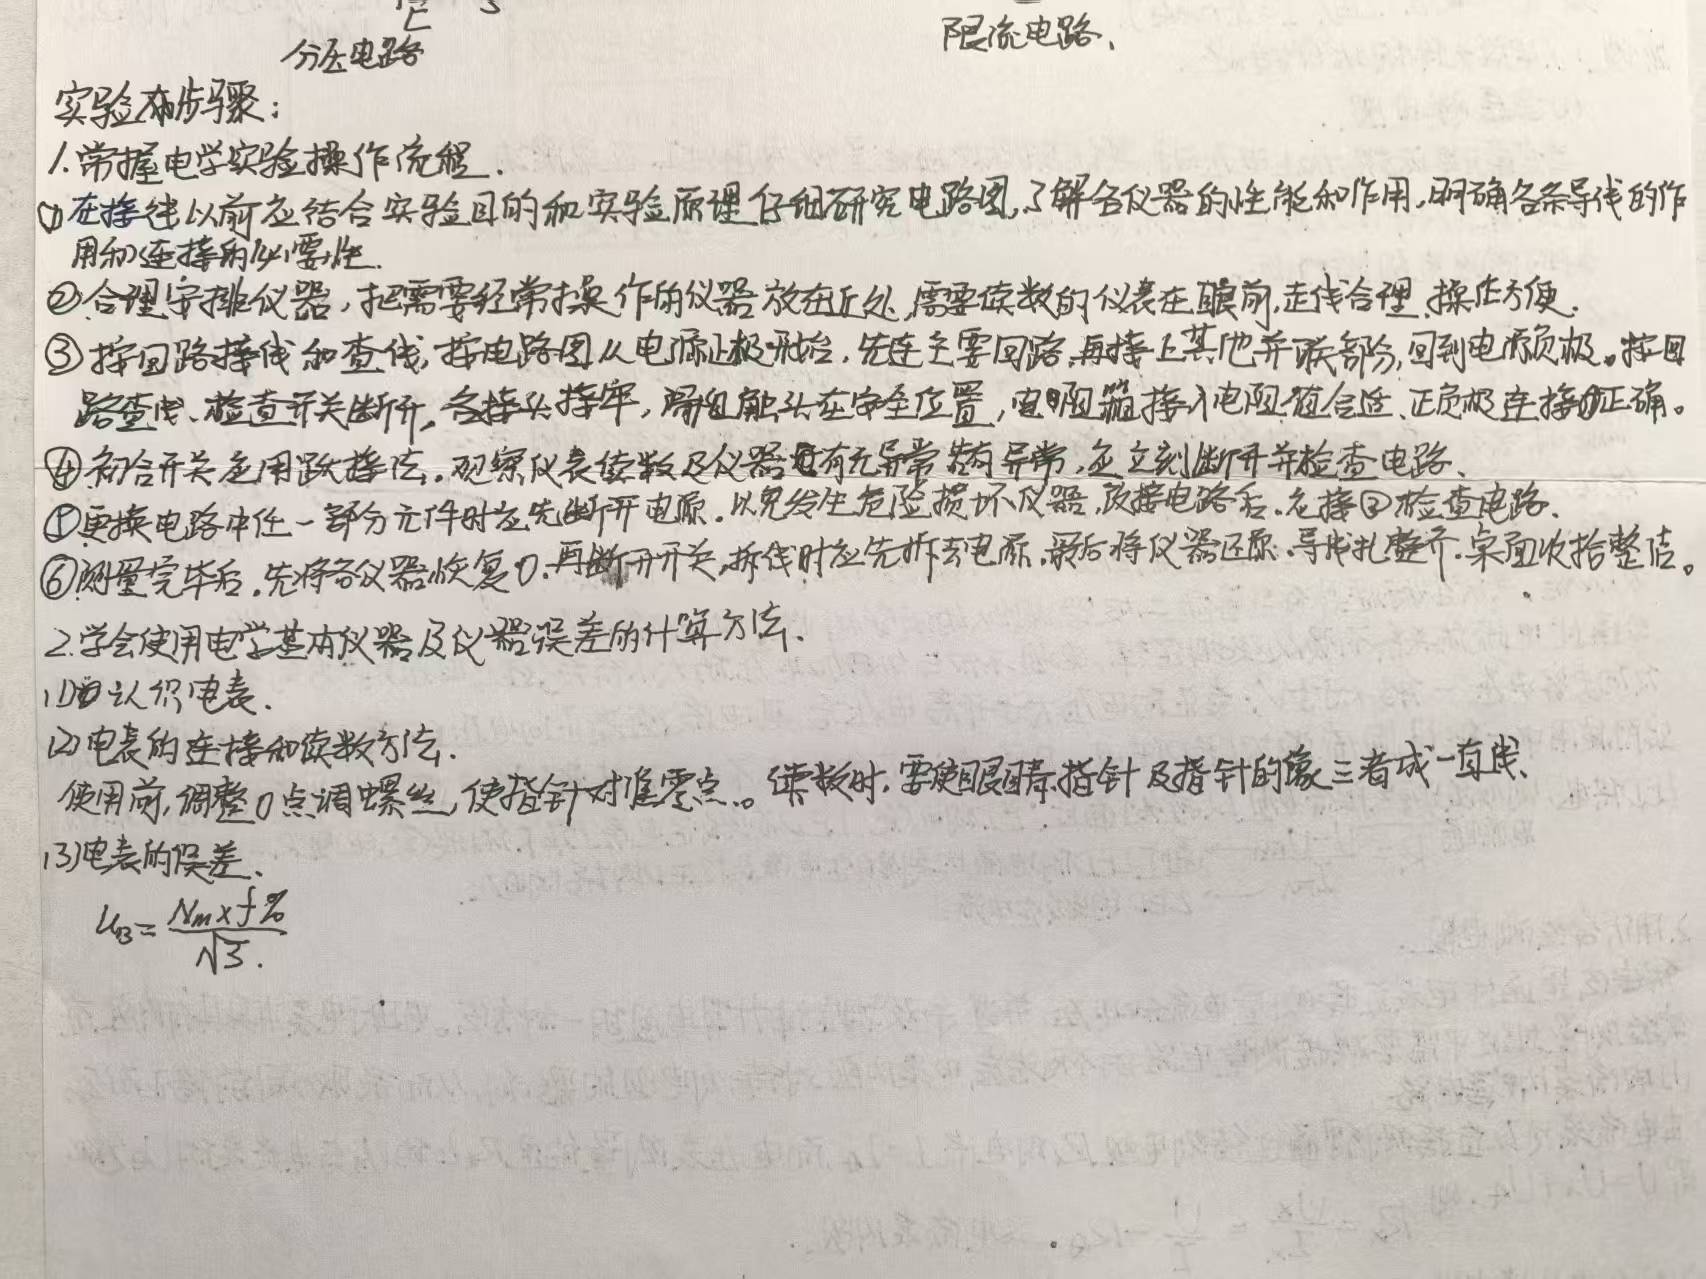 E
分压电路
限流电路、
实验步骤：
1.常握电学实验操作流程.
①在接线以前应结合实验目的和实验原理仔细研究电路图,了解各仪器的性能和作用,明确各条导线的作
用和连接的必要性.
②合理安排仪器,把需要经常操作的仪器放在近处,需要读数的仪表在眼前,走线合理、操作方便.
③按回路接线和查线,按电路图从电源正极开始.先连主要回路.再接上其他并联部分,回到电源负极。按回
路查线、检查开关断开,各接头接牢,滑阻触头在安全位置,电阻箱接入电阻值合适、正负极连接正确。
④初合开关应用跃接法.观察仪表读数及仪器有无异常若有异常,应立刻断开并检查电路、
⑤更换电路中任一部分元件时应先断开电源.以免发生危险损坏仪器,改接电路后.应按③检查电路.
⑥测量完毕后.先将各仪器恢复0.再断开开关,拆线时应先拆去电源.最后将仪器还原.导线扎整齐.桌面收拾整洁。
2.学会使用电学基本仪器及仪器误差的计算方法.
(1)认识电表.
(2)电表的连接和读数方法.
使用前,调整0点调螺丝,使指针对准零点。读数时,要使眼睛.指针及指针的像三者成一直线、
(3)电表的误差.
u_B = (N_m×f%)/√3.